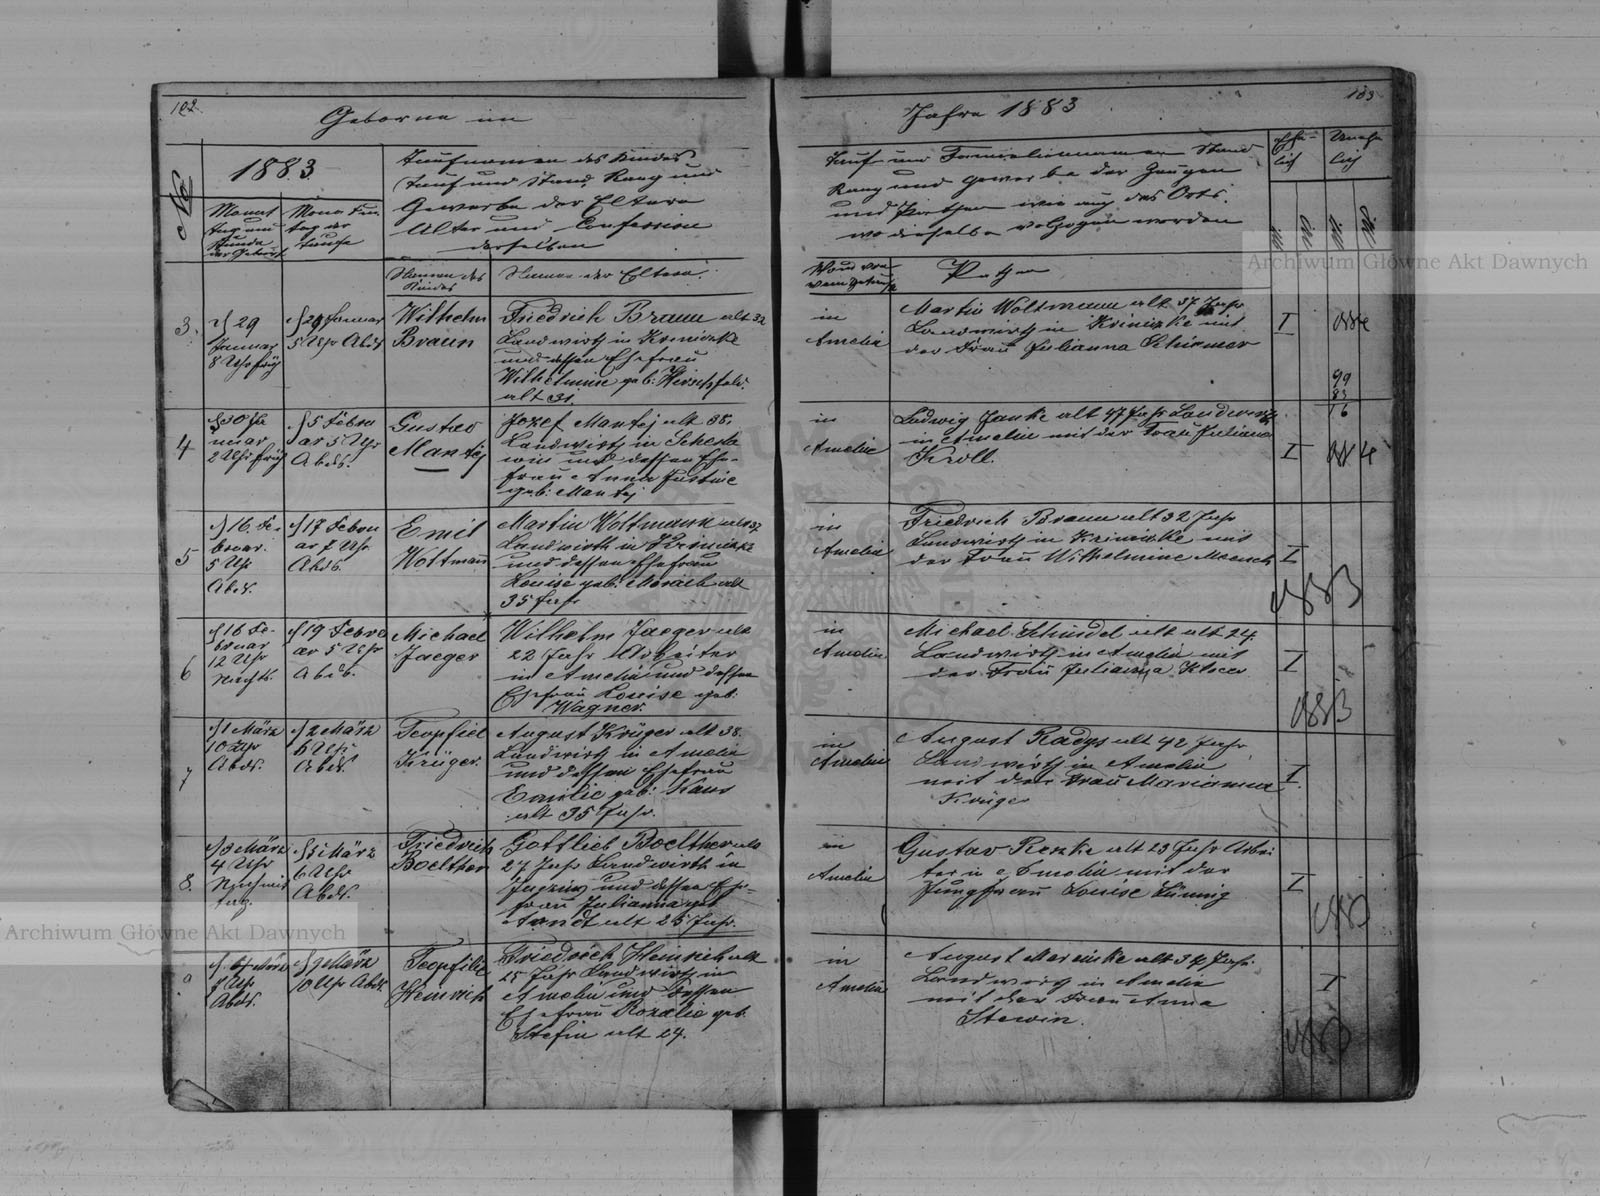 102.
Geborne im
№
1883
Taufnamen des Kindes
Tauf und Stand, Rang und
Gewerbe der Eltern
Alter und Confession
derselben
Monat
Tag und
Stunde
der Geburt
Monat Tun
Tag der
Taufe
Namen des
Kindes
Namen der Eltern
3.
d 29
Januar
8 Uhr früh
d 29 Januar
5 Uhr Abds
Wilhelm
Braun
Friedrich Braun alt 32
Landwirth in Kriniczke
und dessen Ehefrau
Wilhelmine geb: Hirschfeld.
alt 31.
4
d 30 Ja
nuar
2 Uhr früh
d 5 Febru
ar 5 Uhr
Abds.
Gustav
Mantej
Jozef Mantej alt 38.
Landwirth in
und dessen Ehe-
frau Anna Justine
geb: Mantej
5
d 16. Fe-
bruar.
5 Uhr
Abds.
d 17 Febru
ar 7 Uhr
Abds.
Emil
Woltmann
Martin Woltmann alt 37
Landwirth in Kriniczke
und dessen Ehefrau
Louise geb: alt
35 Jahr
6
d 16 Fe-
bruar
12 Uhr
Nachts
d 19 Febru
ar 5 Uhr
Abds.
Michael
Jaeger
Wilhelm Jaeger alt
22 Jahr Arbeiter
in Amelin und dessen
Ehefrau Louise geb:
Wagner.
7
d 1 März
10 Uhr
Abds.
d 2 März
6 Uhr
Abds.
Teophiel
Krüger.
August Krüger alt 38.
Landwirth in Amelin
und dessen Ehefrau
Emilie geb:
alt 35 Jahr.
8.
d 3 März
4 Uhr
Nachmit
tag.
d 5 März
6 Uhr
Abds.
Friedrich
Boelther
Gottlieb Boelther alt
27 Jahr Landwirth in
und dessen Ehe-
frau Julianna geb
Arndt alt 25 Jahr.
9
d. 6 März
Uhr
Abds.
d 9 März
10 Uhr Abds.
Teophilie
Heinrich
Friedrich Heinrich alt
25 Jahr Landwirth in
Amelin und dessen
Ehefrau Rozalie geb.
Stefin alt 24.
Jahre 1883
103
Tauf- und Familiennamen Stand
Rang und Gewerbe der Zeugen
und Pathen wie auch des Orts.
wo dieselbe vollzogen worden
Ehe-
lich
Unehe
lich
Pathen
in
Amelin
Martin Woltmann alt 37 Jahr
Landwirth in Kriniczke mit
der Frau Julianna Schirmer
I
99
83
16
in
Amelin
Ludwig Janke alt 47 Jahr Landwirth
in Amelin mit der Frau Juliana
Kroll.
I
in
Amelin
Friedrich Braun alt 32 Jahr
Landwirth in Kriniczke mit
der Frau Wilhelmine Maensch
I
1883
in
Amelin
Michael Schindel alt alt 24.
Landwirth in Amelin mit
der Frau Julianna
I
1883
in
Amelin
August Radys alt 42 Jahr
Landwirth in Amelin
mit der Frau Marianna
Krüger
I
in
Amelin
Gustav Reszke alt 23 Jahr Arbei
ter in Amelin mit der
Jungfrau Louise
I
1883
in
Amelin
August alt 34 Jahr.
Landwirth in Amelin
mit der Frau Anna
Stewin.
I
1883
Archiwum Główne Akt Dawnych
Archiwum Główne Akt Dawnych